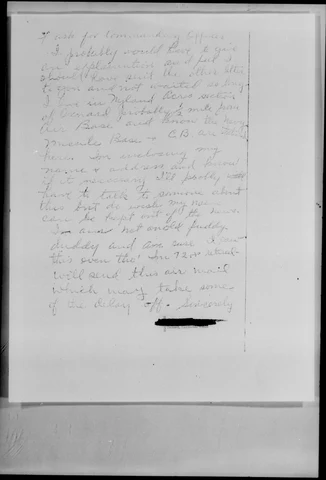 I ask for Commanding Officer
I probably would have to give
an explanation as I felt I
should have sent the other letter
to you and not waited so long
I live in Hyland section
of Oxnard probably 1 mile from
Air Base and know the
Missile Base & C.B. are
here. I'm enclosing my
name & address and phone
if it necessary I'll probably
have to talk to someone about
this but do wish my name
can be kept out of the news.
I am not an old fuddy
duddy and am sure I saw
this even tho' I'm 72
will send this air mail
which may take some
of the delay off. Sincerely